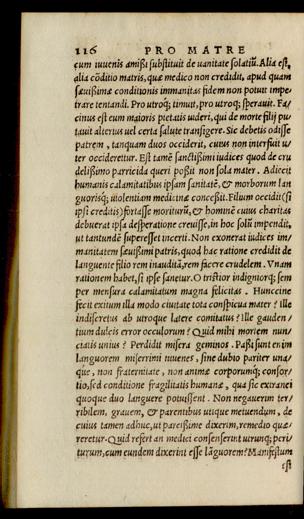 116 PRO MATRE
cum iuuenis amißi substituit de uanitate solatiũ. Alia est,
alia cõditio matris, quæ medico non credidit, apud quam
sæuißimæ conditionis immanitas fidem non potuit impe-
trare tentandi. Pro utroq; timuit, pro utroq; sperauit. Fa-
cinus est eum maioris pietatis uideri, qui de morte filij pu-
tauit alterius uel certa salute transigere. Sic debetis odisse
patrem, tanquam duos occiderit, cuius non interfuit u-
ter occideretur. Est tamẽ sanctißimi iudices quod de cru
delißimo parricida queri poßit non sola mater. Adiecit
humanis calamitatibus ipsam sanitatẽ, & morborum lan
guorisq; uiolentiam medicinæ conceßit. Filium occidit (si
ipsi creditis) fortasse moriturũ, & hominẽ cuius charitas
debuerat ipsa desperatione creuisse, in hoc solũ impendit,
ut tantundẽ superesset incerti. Non exonerat iudices im-
manitatem sæuißimi patris, quod hac ratione credidit de
languente filio rem inauditã, rem facere crudelem. Vnam
rationem habet, si ipse sanetur. O tristior indigniorq; sem
per mensura calamitatum magna felicitas. Hunccine
fecit exitum illa modo ciuitate tota conspicua mater? Ille
indiscretus ab utroque latere comitatus? Ille gauden/
tium dulcis error occulorum? Quid mihi mortem nun-
ctatis unius? Perdidit misera geminos. Paßi sunt enim
languorem miserrimi iuuenes, sine dubio pariter una/
que, non fraternitate, non animæ corporumq; consor/
tio, sed conditione fragilitatis humanæ, qua sic extranei
quoque duo languere potuissent. Non negauerim ter/
ribilem, grauem, & parentibus utique metuendum, de
cuius tamen adhuc, ut pareißime dixerim, remedio quæ/
reretur. Quid refert an medici consenserint utrunq; peri/
turum, cum eundem dixerint esse lãguorem? Manifestum
est